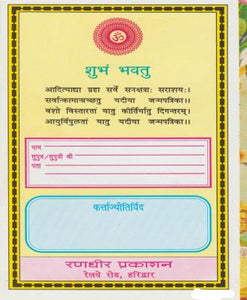 ॐ
शुभं भवतु
आदित्याद्या ग्रहा सर्वे सनक्षत्राः सराशयः।
सर्वान्कामान्प्रयच्छन्तु यदीया जन्मपत्रिका।।
वंशो विस्तारतां यातु कीर्तिर्यातु दिगन्तरम्।
आयुर्विपुलतां यातु यदीया जन्मपत्रिका।।
नाम
सुपुत्र/सुपुत्री श्री
पता
कर्त्ताज्योतिर्विद
रणधीर प्रकाशन
रेलवे रोड, हरिद्वार